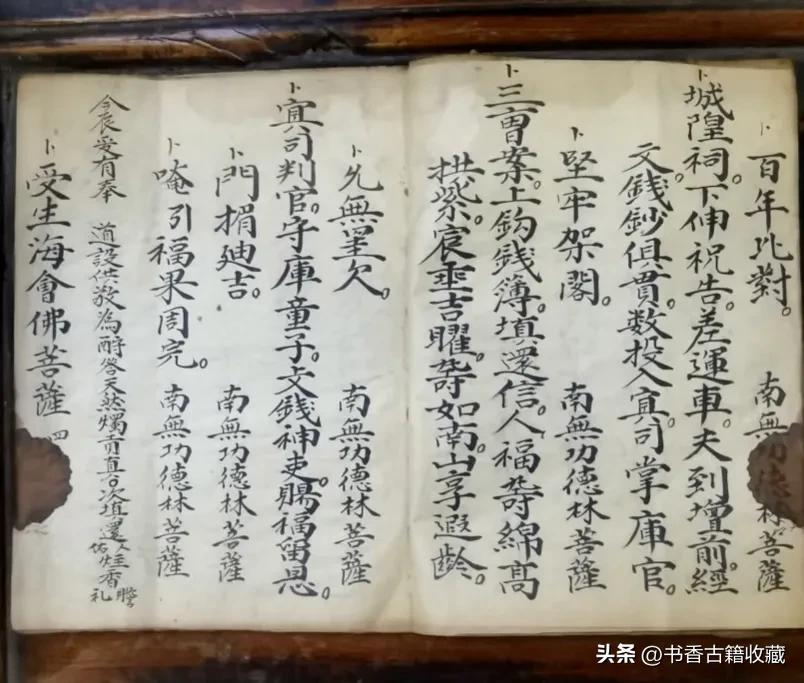 卜 百年比對。 南無功德林菩薩
卜 城隍祠。下伸祝告。差運車。夫到壇前。經
文錢鈔俱貫。數投入冥司掌庫官。
卜 堅牢架閣。 南無功德林菩薩
卜 三曺案。上鈎錢簿。填還信。人福壽綿髙
拱紫宸垂吉曜。壽如南山享遐齡。
卜 無欠。 南無功德林菩薩
卜 冥司判官。守庫童子。文錢神吏。賜福留恩。
卜 門楣廸吉。 南無功德林菩薩
卜 唵引福果周完。 南無功德林菩薩
今宸爰有奉 道設供敬為酧答天然燭貢真香次填還 炷香 礼
卜 受生海會佛菩薩 四
头条 @书香古籍收藏